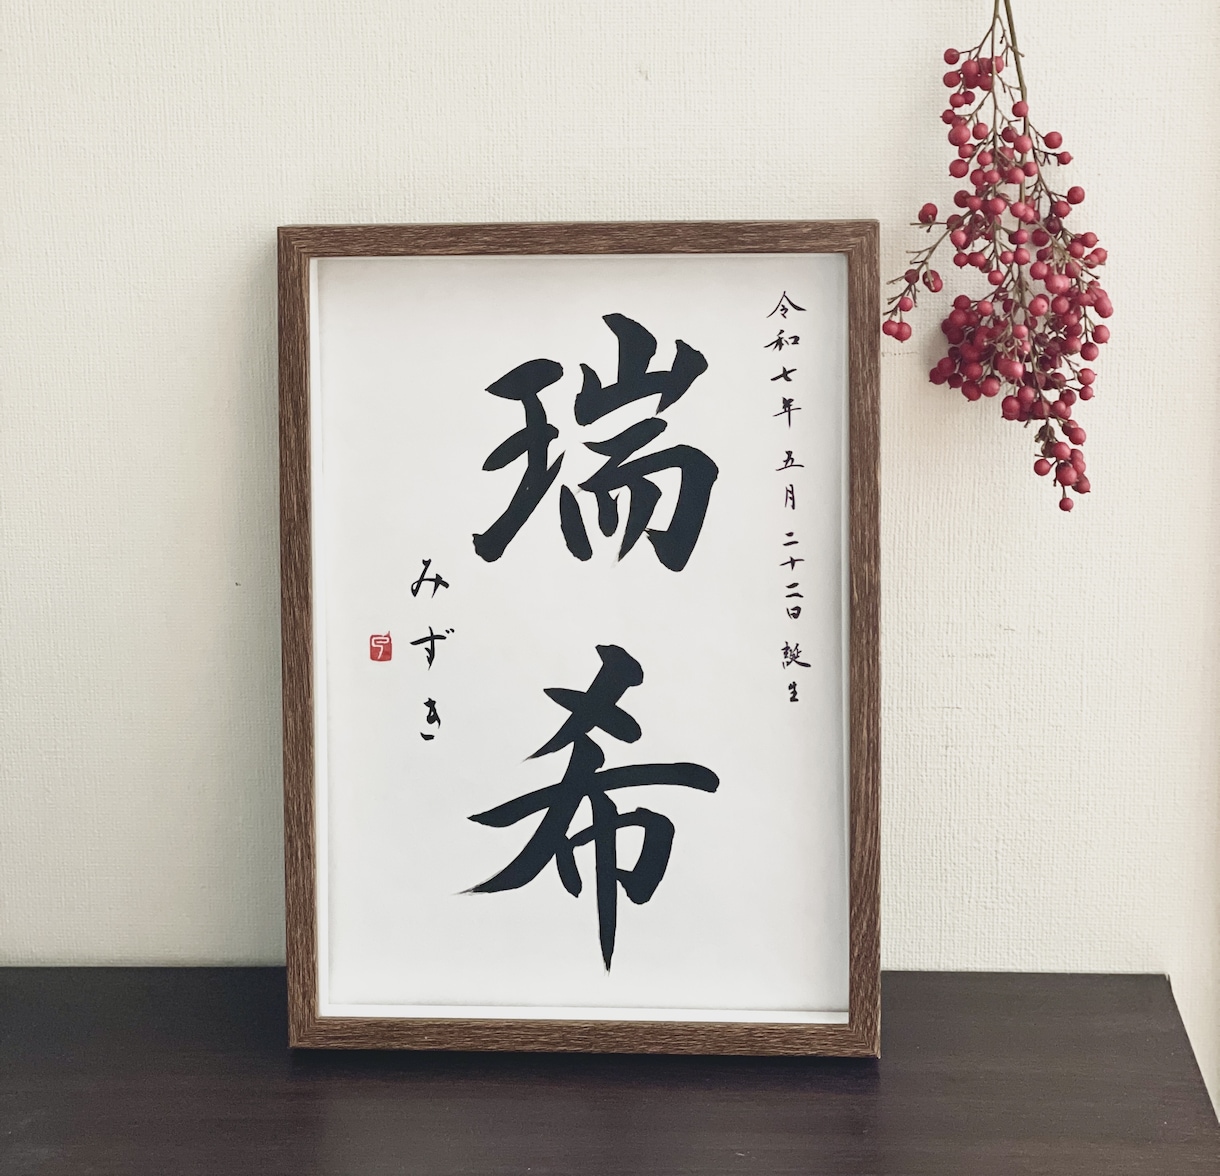 令和七年 五月 二十二日 誕生
瑞希
みずき